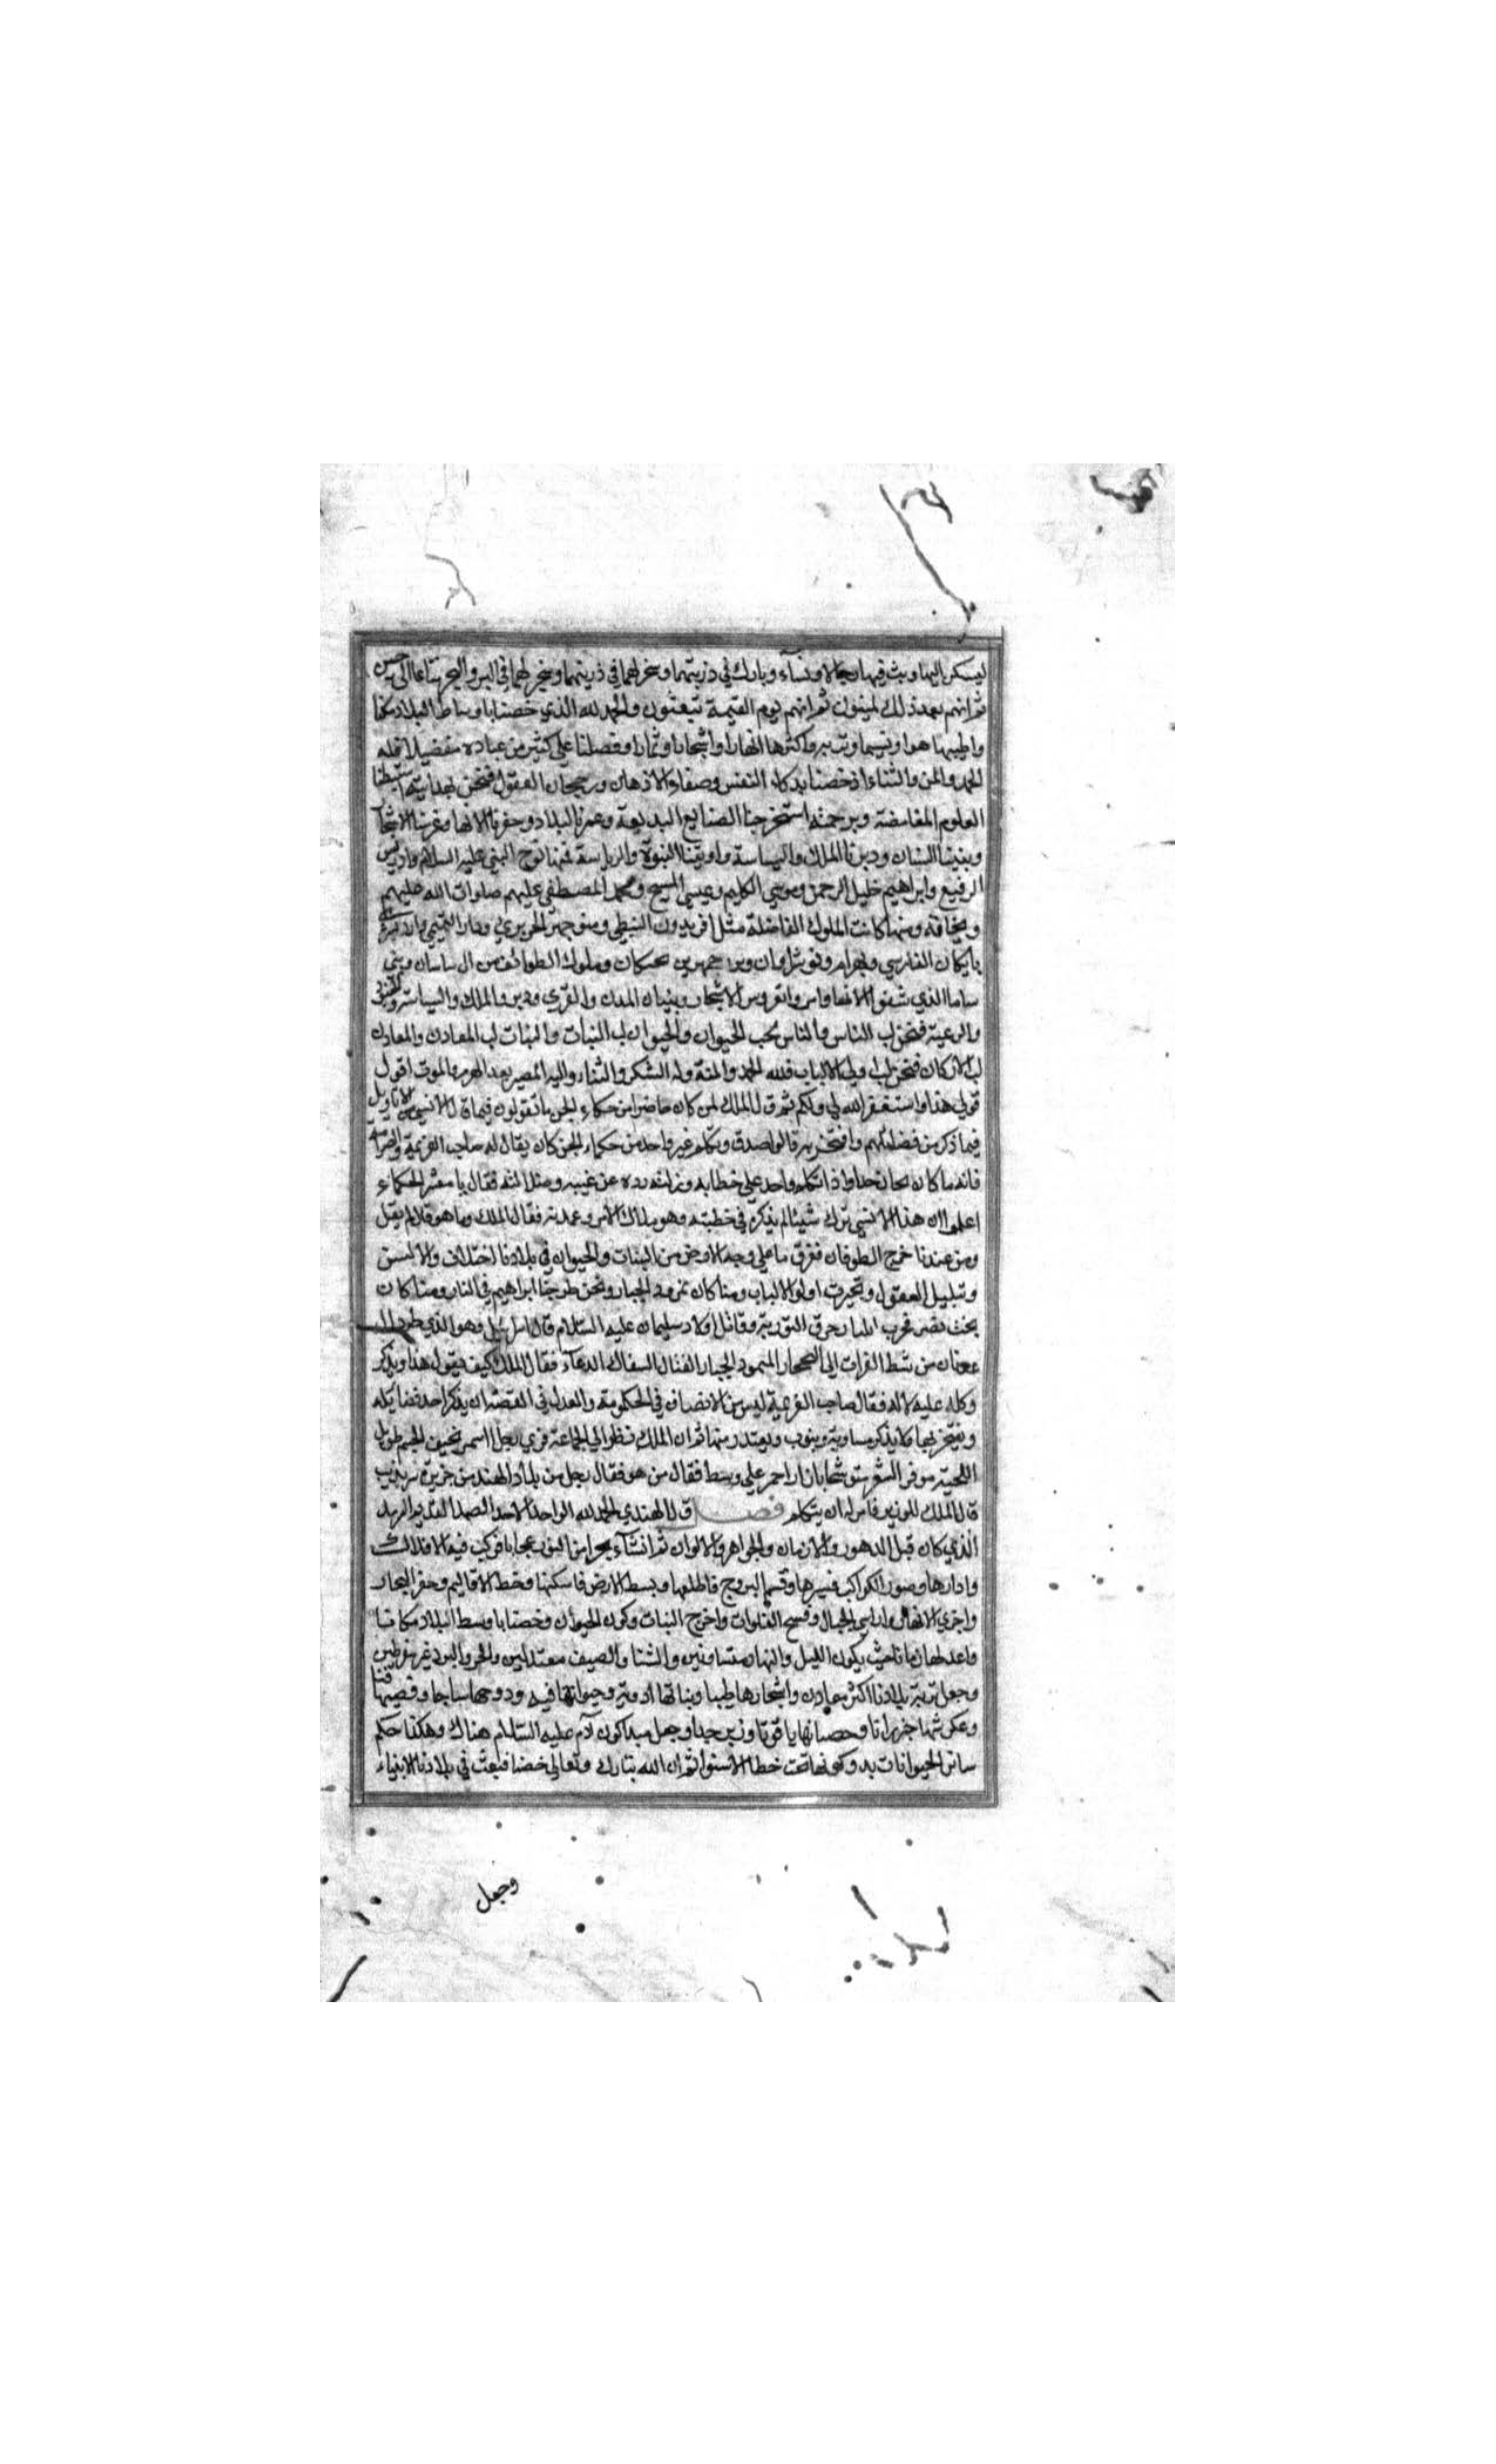 ليسكن اليها وبث فيها رجالا ونساء وبارك في ذريتهما وسخر لهما في ذريتهما وسخر لهما في البر والبحر متاعا الى حين
ثم انهم بعد ذلك لميتون ثم انهم يوم القيمة تبعثون والحمد لله الذي خصنا باوساط البلاد سكنا
واطيبها هوا ونسيما وتربة واكثرها انهارا واشجارا وثمارا وفضلنا على كثير من عباده تفضيلا فله
الحمد والمن والثناء اذ خصنا بذكاء النفس وصفاء الاذهان ورجحان العقول فنحن بهدايته استنبطنا
العلوم الغامضة وبرحمته استخرجنا الصنايع البديعة وعمرنا البلاد وحفرنا الانهار وغرسنا الاشجار
وبنينا البنيان ودبرنا الملك والسياسة واوتينا النبوة والرياسة فمنا نوح النبي عليه السلام وادريس
الرفيع وابراهيم خليل الرحمن وموسي الكليم وعيسي المسيح ومحمد المصطفي عليهم صلوات الله عليهم
ومنها كانت الملوك الفاضلة مثل افريدون النبطي ومنوجهر ودارا التميمي واردشير
بابكان الفارسي وبهرام ونوشروان وملوك الطوائف من ال ساسان وبني
ساما الذي شقوا الانهار وامر بغروس الاشجار وبنيان المدن والقري ودبروا الملك والسياسة والجنود
والرعية فنحن لب الناس والناس لب الحيوان والحيوان لب النبات والنبات لب المعادن والمعادن
لب الاركان فنحن لب اولي الالباب فلله الحمد والمنة وله الشكر والثناء واليه المصير بعد الهرم والموت اقول
قولي هذا واستغفر الله لي ولكم ثم قال الملك لمن كان حاضرا من حكماء الجن ما تقولون فيما قال الانسي من الاقاويل
فيما ذكر من فضائلهم وافتخر به قالوا صدق وتكلم غير واحد من حكماء الجن كان يقال له صاحب العزيمة والصرامة
فانه ما كان يحابي احدا واذا تكلم واحد على خطابه وزلته رده عن غيبه وضلالته فقال يا معشر الحكماء
اعلموا ان هذا الانسي ترك شيئا لم يذكره في خطبته وهو ملاك الامر وعمدته فقال الملك وما هو قال لم يقل
ومن عندنا خرج الطوفان فغرق ما علي وجه الارض من النبات والحيوان وفي بلادنا اختلاف والالسن
وتبلبل العقول وتحيرت اولو الالباب ومنا كان نمرود الجبار ونحن طرحنا ابراهيم في النار ومنا كان
بخت نصر مخرب ايليا ومحرق التورية وقاتل اولاد سليمان عليه السلام وال اسرائيل وهو الذي طرد ال
عدنان من شط الفرات الى الصحاري المتمرد الجبار القتال السفاك الدماء فقال الملك كيف يقول هذا ويذكر
وكله عليه لا له فقال صاحب العزيمة ليس من الانصاف في الحكومة والعدل في القصة ان يذكر احد فضائله
ويفتخر بها ولا يذكر مساويه ويتوب ويعتذر منها ثم ان الملك نظر الي الجماعة فري رجلا اسمر نحيف الجسم طويل
اللحية موفر الشعر متوشحا بازار احمر علي وسطه فقال من هو فقال رجل من بلاد الهند من جزيرة سرنديب
قال الملك للوزير فامر له ان يتكلم فصل قال الهندي الحمد لله الواحد الاحد الصمد القديم السرمد
الذي كان قبل الدهور والازمان والجواهر والالوان ثم انشاء بحرا من النور عجابا فركب فيه الافلاك
وادارها وصور الكواكب فسيرها وقسم البروج فاطلعها وبسط الارض فاسكنها وخط الاقاليم وحفر البحار
واجري الانهار وارسي الجبال وفسح الفلوات واخرج النبات وكون الحيوان وخصنا باوسط البلاد مكانا
واعدلها زمانا حيث يكون الليل والنهار متساويين والشتا والصيف معتدلين والحر والبرد غير مفرطين
وجعل تربة بلادنا اكثر معادن واشجارها طيبا ونباتها ادوية وحيوانها فيله ودوحها ساجا وقصبها قنا
وعكرشها خيزرانا وحصبانها ياقوتا وزبرجدا وجعل مبدا كون آدم عليه السلام هناك وهكذا حكم
سائر الحيوانات بدو كونها تحت خط الاستوا ثم ان الله تبارك وتعالى خصنا فبعث في بلادنا الانبياء
وجعل